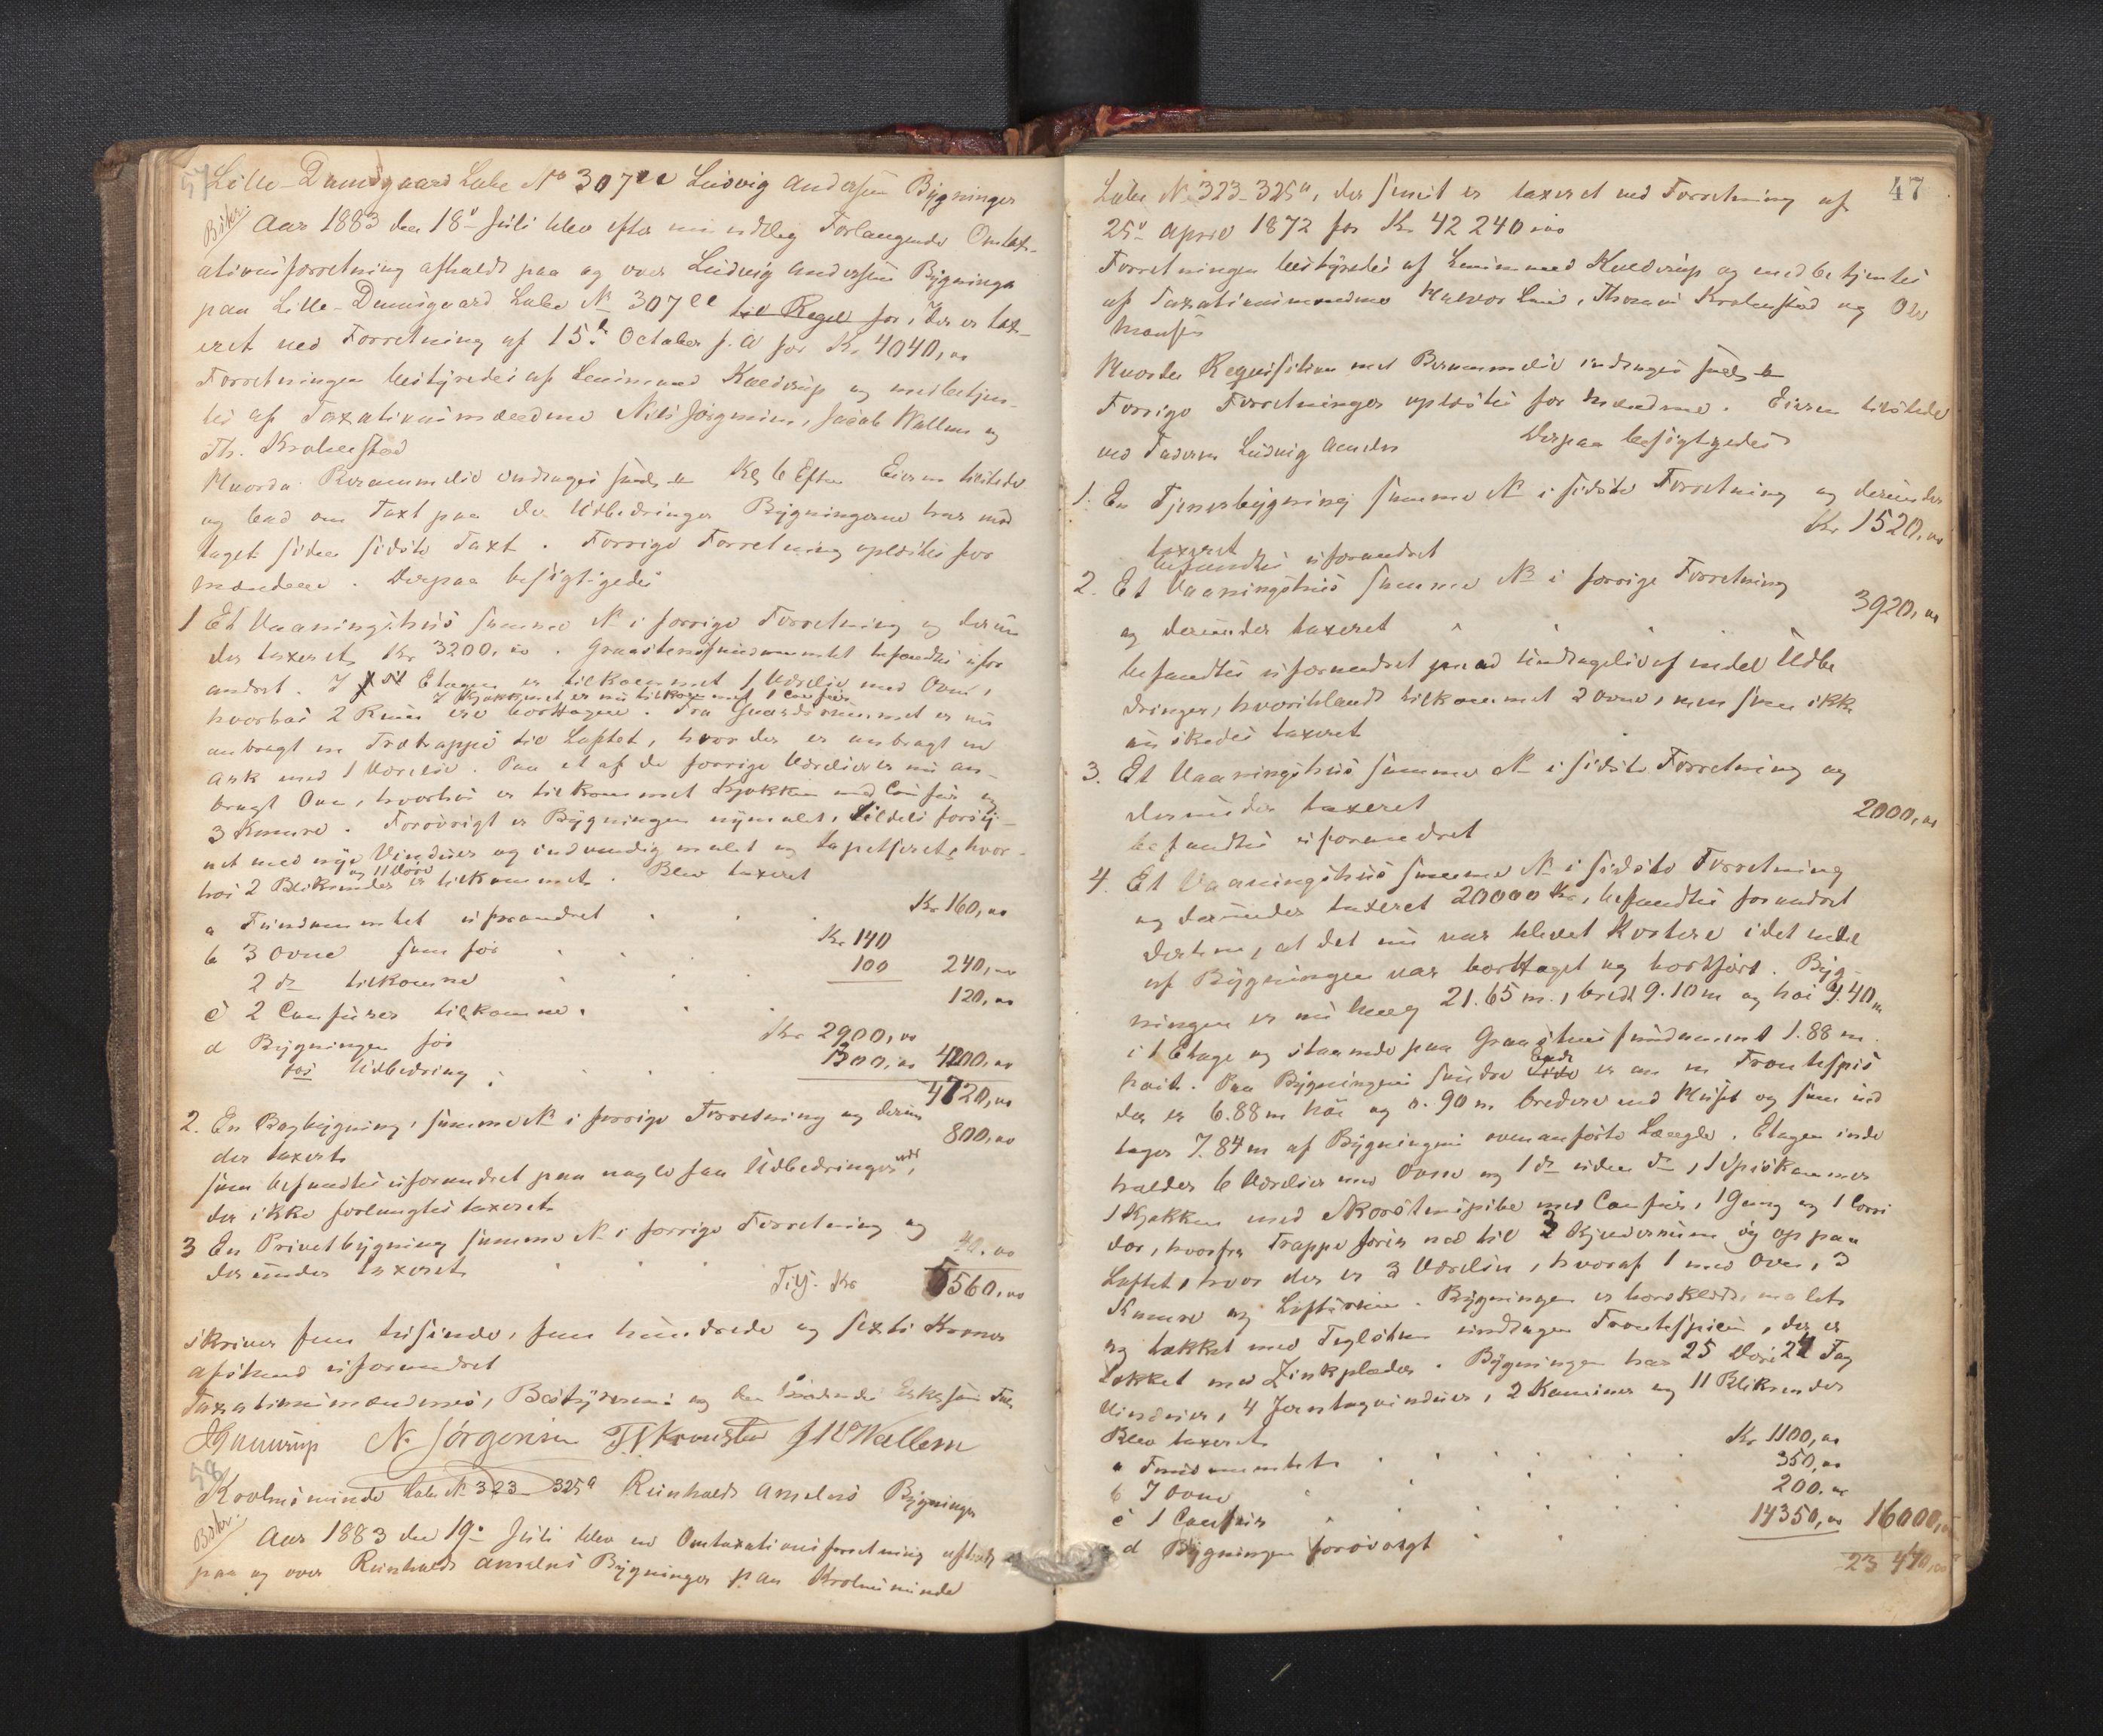 57
Lille-Damsgaard Løbe No 307ee Ludvig Andersens Bygninger
Bskr.
Aar 1883 den 18de Juli blev efter mundtlig Forlangende Omtax-
ationsforretning afholdt paa og over Ludvig Andersens Bygninger
paa Lille-Damsgaard Løbe No 307ee til Regel for, der er tax-
eret ved Forretning af 15de October f. A for Kr 4040,00
Forretningen bestyredes af Lensmand Kuldrup og medbetjen-
tes af Taxationsmændene Nils Jørgensen, Jacob Wallem og
Th. Krohnstad
Hvorda Berammelse inddrages Kl 6 Eften Eieren tilstede
og bad om Taxt paa de Udbedringer Bygningerne har mod
taget siden sidste Taxt. Forrige Forretning oplæstes for
Mændene. Derpaa besigtigedes
1 Et Vaaningshus samme No i forrige Forretning og derun
der taxeret Kr 3200,00. Graastensfundamentet befandtes ufor
andret. I Etagen er tilkommet 1 Værelse med Ovn,
I Kjøkkenet er nu tilkommet 1 Comfur
hvorhos 2 Rum ere borttagne. Fra Gaardsrummet er nu
anbragt en Trætrappe til Loftet, hvor der er anbragt en
Ark med 1 Værelse. Paa et af de forrige Værelser er nu an-
bragt Ovn, hvorhos er tilkommet Kjøkken med Comfur og
3 Kamre. Forøvrigt er Bygningen nymalet, tildels forsy-
net med nye Vinduer og indvendig malet og tapetseret, hvor-
og 11 Døre
hos 2 Blikrender er tilkommet. Blev taxeret
a Fundamentet uforandret . . Kr 160,00
b 3 Ovne som før . . Kr 140
2 do tilkomne . . 100 240,00
c 2 Comfurer tilkomne . . 120,00
d Bygningen før Kr 2900,00
for Udbedring . . 1300,00 4200,00
4720,00
2. En Bagbygning, samme No i forrige Forretning og derun
der taxeret 800,00
som befandtes uforandret paa nogle faa Udbedringer nær,
der ikke forlangtes taxeret
3 En Privetbygning samme No i forrige Forretning og
derunder taxeret . . . 40,00
Tils. Kr 5560,00
skriver fem tusinde, fem hundrede og sexti Kroner
Afstand uforandret
Taxationsmændenes, Bestyrerens og
N. Jørgensen Th Kronstad J W Wallem
58
Krohnsminde Løbe No 323-325a Reinholdt Amelns Bygninger
Bskr.
Aar 1883 den 19de Juli blev en Omtaxationsforretning afholdt
paa og over Reinholdt Amelns Bygninger paa Krohnsminde
47
Løbe No 323-325a, der senest er taxeret ved Forretning af
25de April 1872 for Kr 42240,00
Forretningen bestyredes af Lensmand Kuldrup og medbetjentes
af Taxationsmændene Halvor Lund, Thomas Krohnstad og Ole
Monsen
Hvorda Requisition med Berammelse inddrages
Forrige Forretninger oplæstes for Mændene. Eieren tilstede
ved Faderen Ludvig Ameln Derpaa besigtigedes
1. En Tjenerbygning samme No i sidste Forretning og derunder
taxeret Kr 1520,00
befandtes uforandret
2. Et Vaaningshus samme No i forrige Forretning
og derunder taxeret 3920,00
befandtes uforandret paa undtagelse af endel Udbe
dringer, hvoriblandt tilkommet 2 Ovne, men som ikke
ønskedes taxeret
3. Et Vaaningshus samme No i sidste Forretning og
derunder taxeret 2000,00
befandtes uforandret
4. Et Vaaningshus samme No i sidste Forretning
og derunder taxeret 20000 Kr, befandtes forandret
derhen, at det nu var blevet kortere idet endel
af Bygningen var borttaget og bortført. Byg-
ningen er nu lang 21.65 m., bred 9.10 m og høi 4.40 m
i 1 Etage og staaende paa Graastensfundament 1.88 m.
høit. Paa Bygningens søndre Ende er en Frontespis
der er 6.88 m høi og 0.90 m bredere end Huset og som ind
tager 7.84 m af Bygningens ovenanførte Længde. Etagen inde
holder 6 Værelser med Ovne og 1 do uden do, 1 Spiskammer
1 Kjøkken med Skorstenspibe med Comfur, 1 Gang og 1 Corri
dor, hvorfra Trappe fører ned til 3 Kjelderrum og op paa
Loftet, hvor der er 3 Værelser, hvoraf 1 med Ovn, 3
Kamre og Loftsrum. Bygningen er bordklædt, malet
og tækket med Teglsten undtagen Frontespicen, der er
tækket med Zinkplader. Bygningen har 25 Døre 24 Fag
Vinduer, 4 Jerntagvinduer, 2 Kaminer og 11 Blikrender
Blev taxeret
a Fundamentet . . . Kr 1100,00
b 7 Ovne . . . 350,00
c 1 Comfur . . . 200,00
d Bygningen forøvrigt . . 14350,00 16000,00
23 440,00